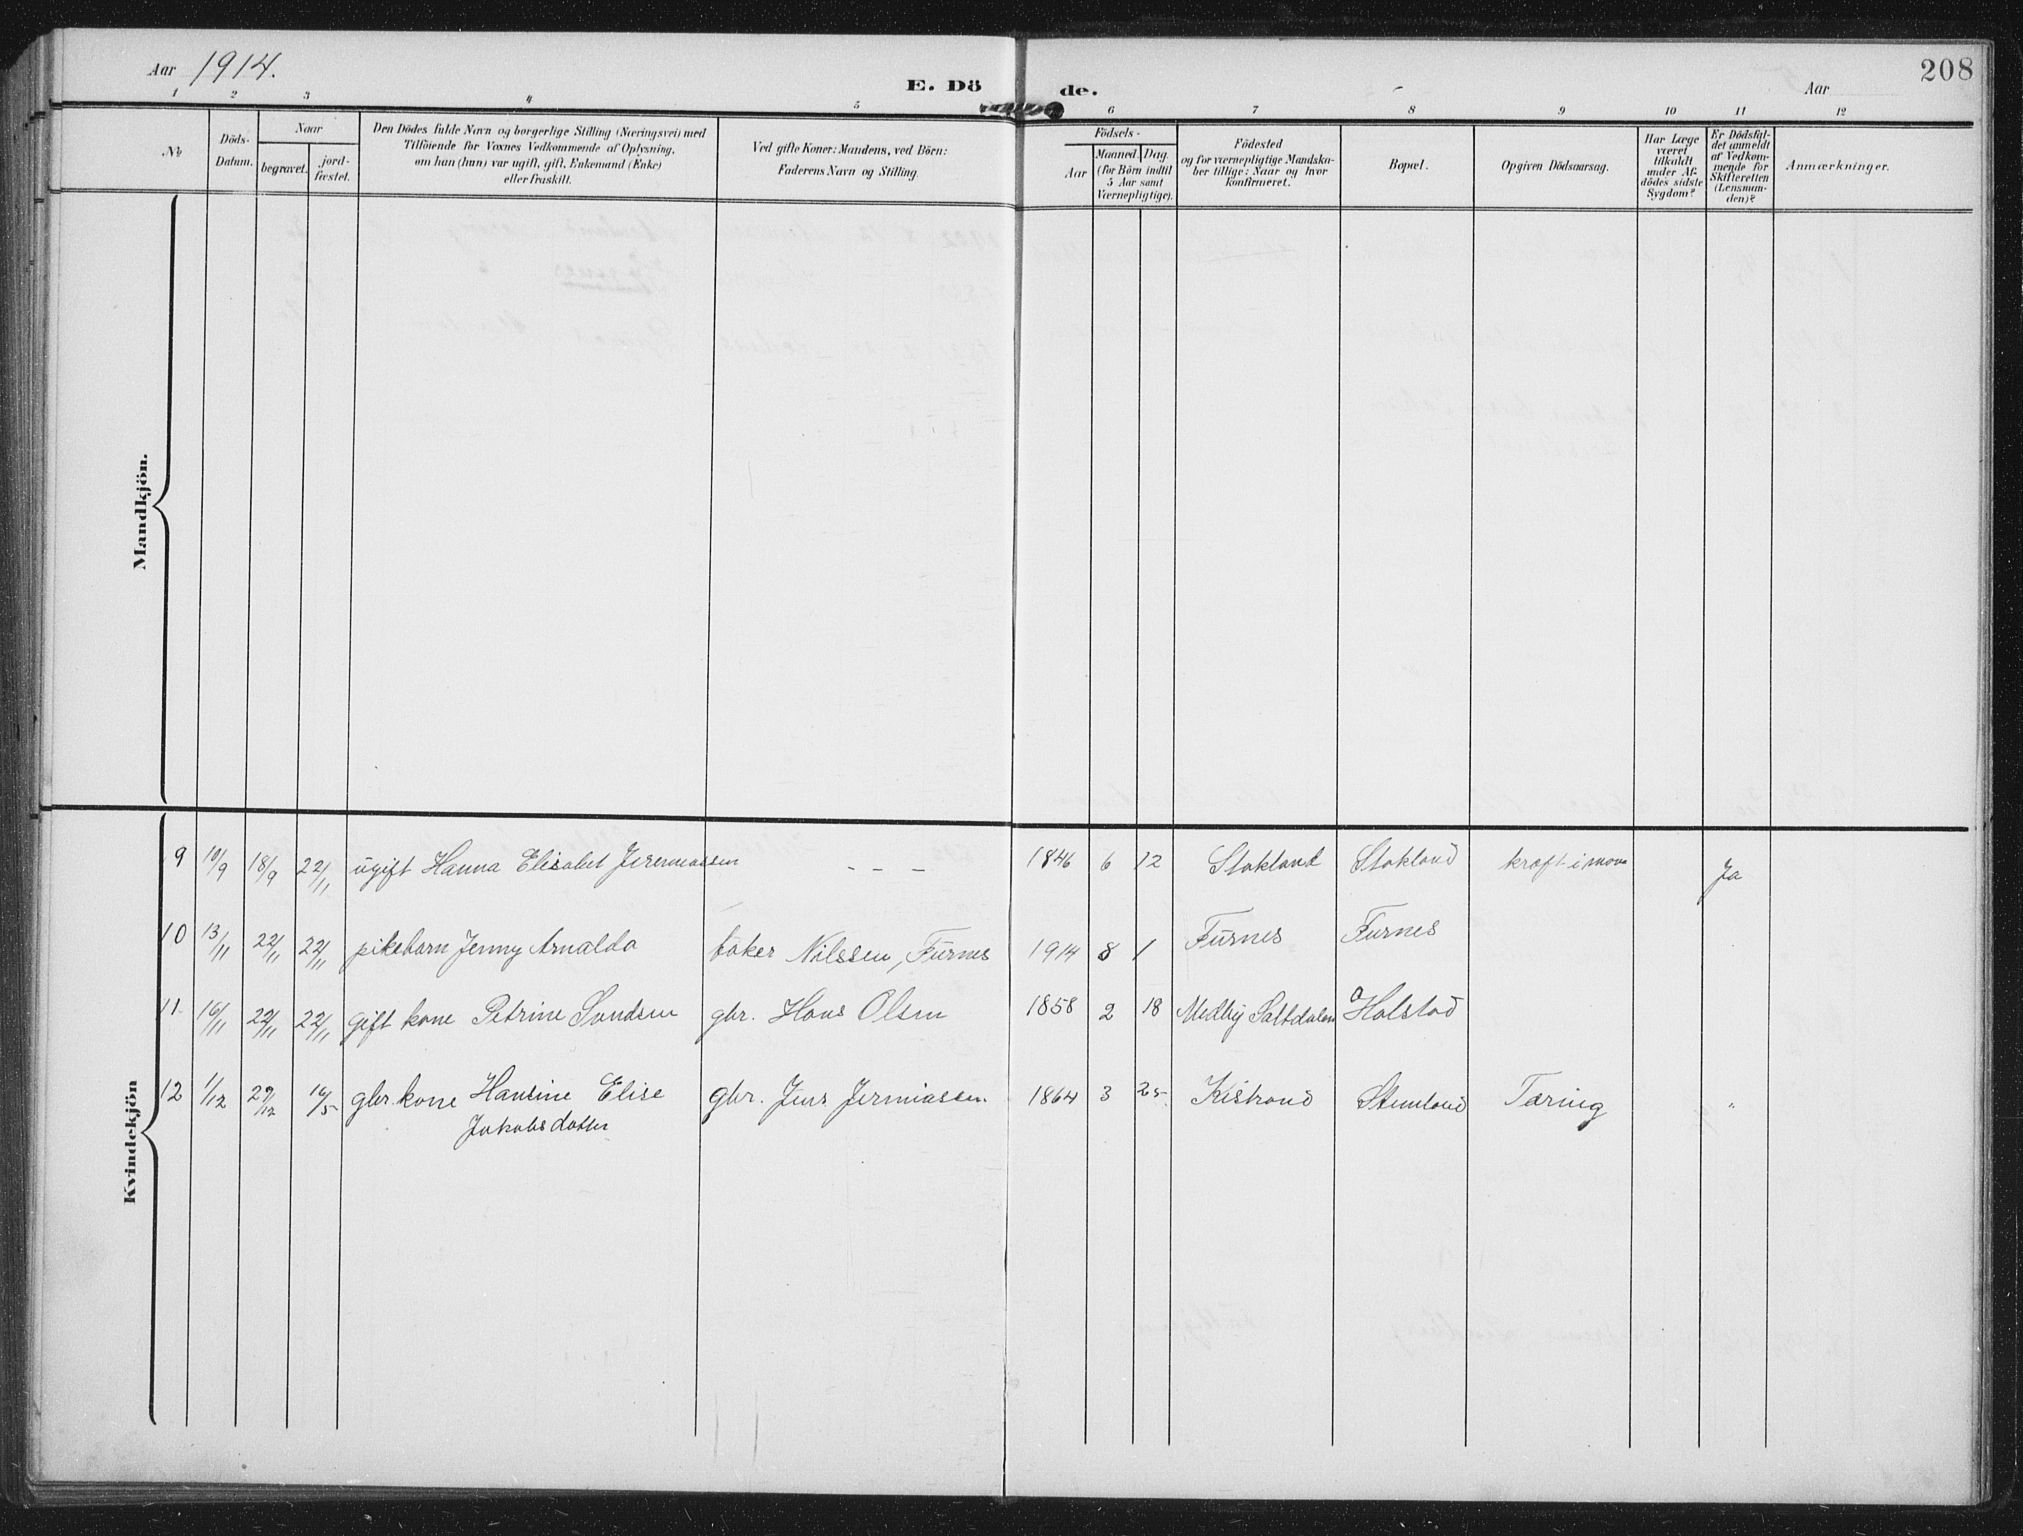 Aar 1914.
E. Dö de.
Aar
208
1 2 3 4 5 6 7 8 9 10 11 12
№
Döds-
Datum.
Naar
begravet.
jord-
fæstet.
Den Dödes fulde Navn og borgerlige Stilling (Næringsvei) med
Tilföiende for Voxnes Vedkommende af Oplysning,
om han (hun) var ugift, gift, Enkemand (Enke)
eller fraskilt.
Ved gifte Koner: Mandens, ved Börn:
Faderens Navn og Stilling.
Födsels-
Aar
Maaned. Dag.
(for Börn indtil
5 Aar samt
Værnepligtige).
Födested
og for værnepligtige Mandska-
ber tillige: Naar og hvor
konfirmeret.
Bopæl.
Opgiven Dödsaarsag.
Har Læge
været
tilkaldt
under Af-
dödes sidste
Sygdom?
Er Dödsfal-
det anmeldt
af Vedkom-
mende for
Skifteretten
(Lensman-
den)?
Anmærkninger.
Mandkjön.
Kvindekjön
9 10/9 18/9 22/11 ugift Hanna Elisabet Jeremiassen - - - 1846 6 12 Stokland Stokland kræft i mave Ja
10 13/11 22/11 22/11 pikebarn Jenny Arnalda baker Nilssen, Furnes 1914 8 1 Furnes Furnes
11 16/11 22/11 22/11 gift kone Petrine Svendsen gbr. Hans Olsen 1858 2 18 Medby Saltdalen Halstad
12 1/12 29/12 16/5 gbr. kone Hansine Elise gbr. Jens Jermiassen. 1864 3 25. Kistrand Stemland Tæring "
Jakobsdatter